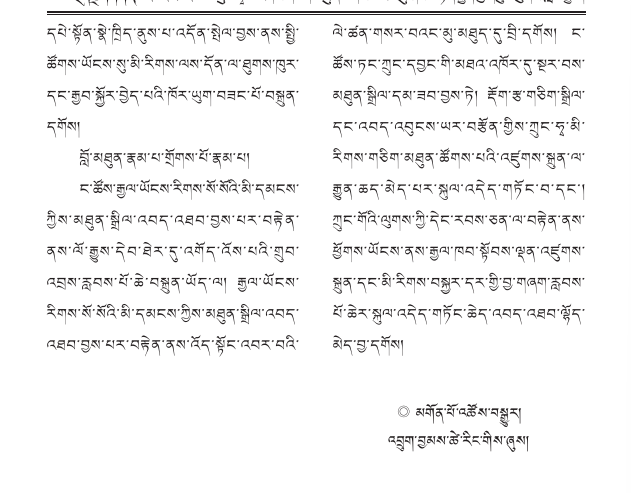 དཔེ་སྟོན་སྣེ་ཁྲིད་ནུས་པ་འདོན་སྤེལ་བྱས་ནས་སྤྱི་
ཚོགས་ཡོངས་སུ་མི་རིགས་ལས་དོན་ལ་ཐུགས་ཁུར་
དང་རྒྱབ་སྐྱོར་བྱེད་པའི་ཁོར་ཡུག་བཟང་པོ་བསྐྲུན་
དགོས།
བློ་མཐུན་རྣམ་པ་གྲོགས་པོ་རྣམ་པ།
ང་ཚོས་རྒྱལ་ཡོངས་རིགས་སོ་སོའི་མི་དམངས་
ཀྱིས་མཐུན་སྒྲིལ་འབད་འཐབ་བྱས་པར་བརྟེན་
ནས་ལོ་རྒྱུས་དེབ་ཐེར་དུ་འགོད་འོས་པའི་གྲུབ་
འབྲས་རླབས་པོ་ཆེ་བསྐྲུན་ཡོད་ལ། རྒྱལ་ཡོངས་
རིགས་སོ་སོའི་མི་དམངས་ཀྱིས་མཐུན་སྒྲིལ་འབད་
འཐབ་བྱས་པར་བརྟེན་ནས་འོད་སྟོང་འབར་བའི་
ལེ་ཚན་གསར་བའང་མུ་མཐུད་དུ་བྲི་དགོས། ང་
ཚོས་ཏང་ཀྲུང་དབྱང་གི་མཐའ་འཁོར་དུ་སྔར་བས་
མཐུན་སྒྲིལ་དམ་ཟབ་བྱས་ཏེ། རྡོག་རྩ་གཅིག་སྒྲིལ་
དང་འབད་འབུངས་ཡར་བརྩོན་གྱིས་ཀྲུང་ཧྭ་མི་
རིགས་གཅིག་མཐུན་ཚོགས་པའི་འཛུགས་སྐྲུན་ལ་
རྒྱུན་ཆད་མེད་པར་སྐུལ་འདེད་གཏོང་བ་དང་།
ཀྲུང་གོའི་ལུགས་ཀྱི་དེང་རབས་ཅན་ལ་བརྟེན་ནས་
ཕྱོགས་ཡོངས་ནས་རྒྱལ་ཁབ་སྟོབས་ལྡན་འཛུགས་
སྐྲུན་དང་མི་རིགས་བསྐྱར་དར་གྱི་བྱ་གཞག་རླབས་
པོ་ཆེར་སྐུལ་འདེད་གཏོང་ཆེད་འབད་འཐབ་ལྷོད་
མེད་བྱ་དགོས།
◎ མགོན་པོ་འཚོས་བསྒྱུར།
འབྲུག་བྱམས་ཚེ་རིང་གིས་ཞུས།